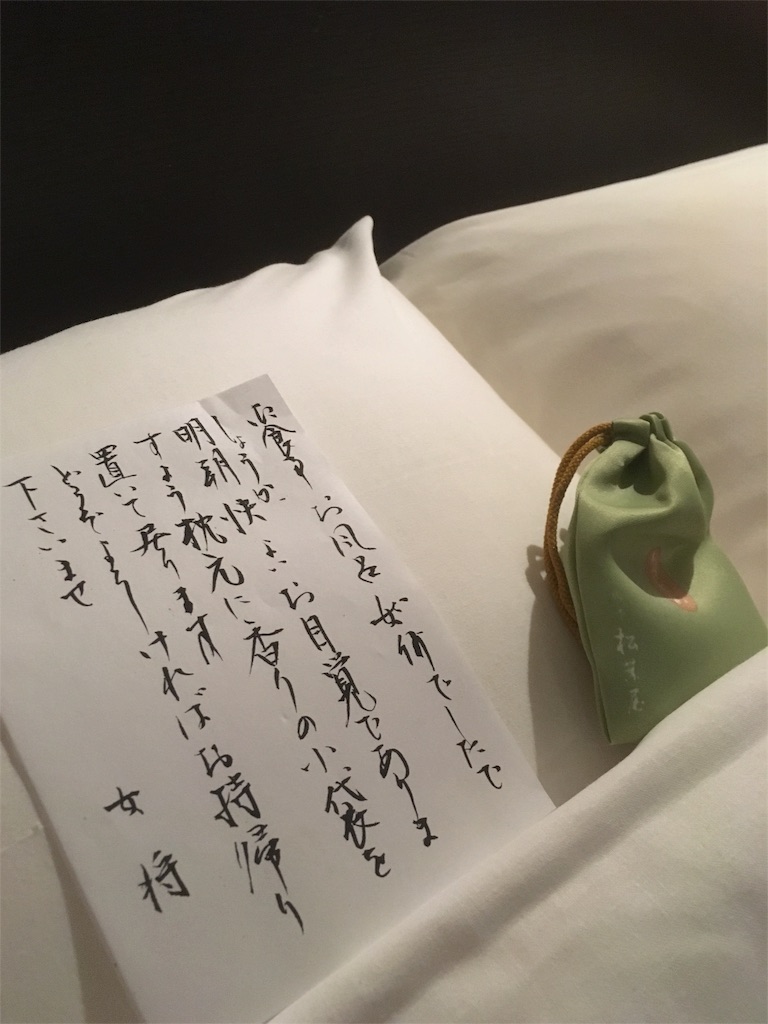 お食事お風呂如何でしたで
しょうか 快よいお目覚でありま
明朝
すよう枕元に香りの小袋を
置いて居ります
どうぞよろしければお持帰り
下さいませ
女将
松葉屋